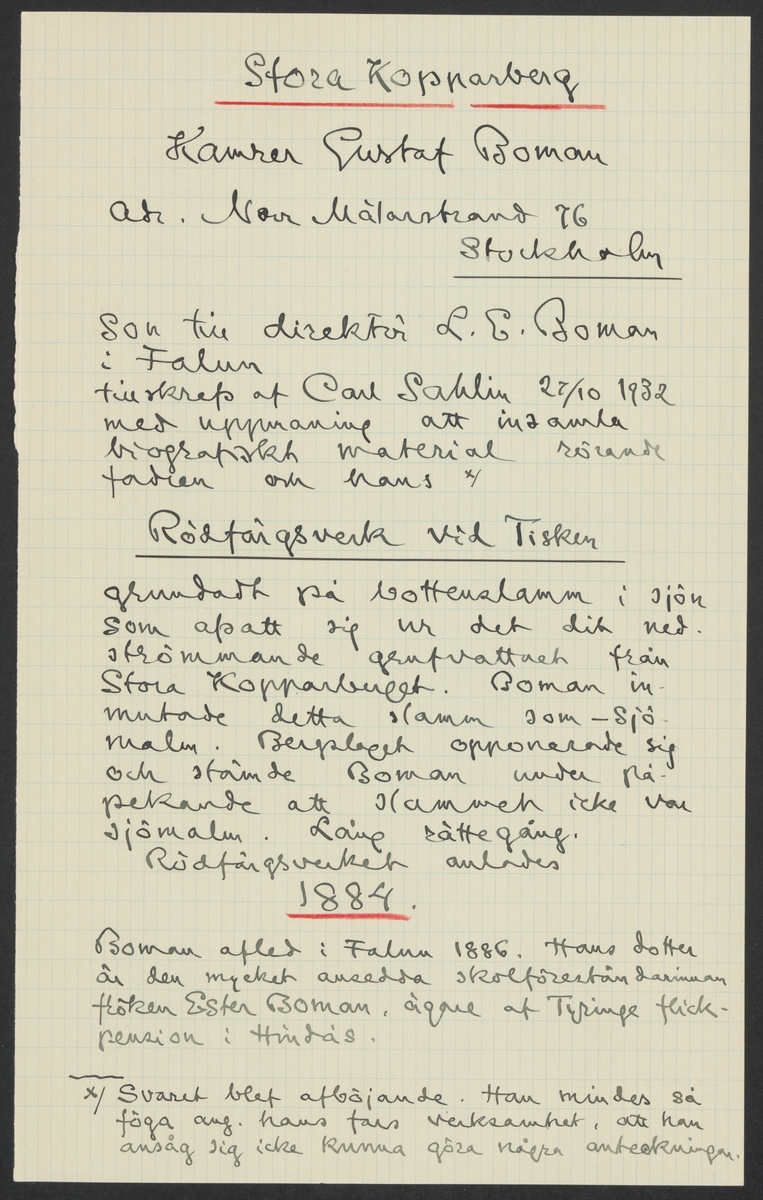 Stora Kopparberg
Kamrer Gustaf Boman
Adr. Norr Mälarstrand 76
Stockholm
Son till direktör L. E. Boman
i Falun
tillskrefs af Carl Sahlin 27/10 1932
med uppmaning att insamla
biografiskt material rörande
fadren och hans x/
Rödfärgsverk vid Tisken
grundadt på bottenslamm i sjön
som afsatt sig ur det dit ned-
strömmande grufvattnet från
Stora Kopparberget. Boman in-
mutade detta slamm som - Sjö-
malm. Bergslaget opponerade sig
och stämde Boman under på-
pekande att slammet icke var
sjömalm. Lång rättegång.
Rödfärgsverket anlades
1884.
Boman afled i Falun 1886. Hans dotter
är den mycket ansedda skolföreståndarinnan
fröken Ester Boman, ägare af Tyringe flick-
pension i Hindås.
x/ Svaret blef afböjande. Han mindes så
föga ang. hans fars verksamhet, att han
ansåg sig icke kunna göra några anteckningar.